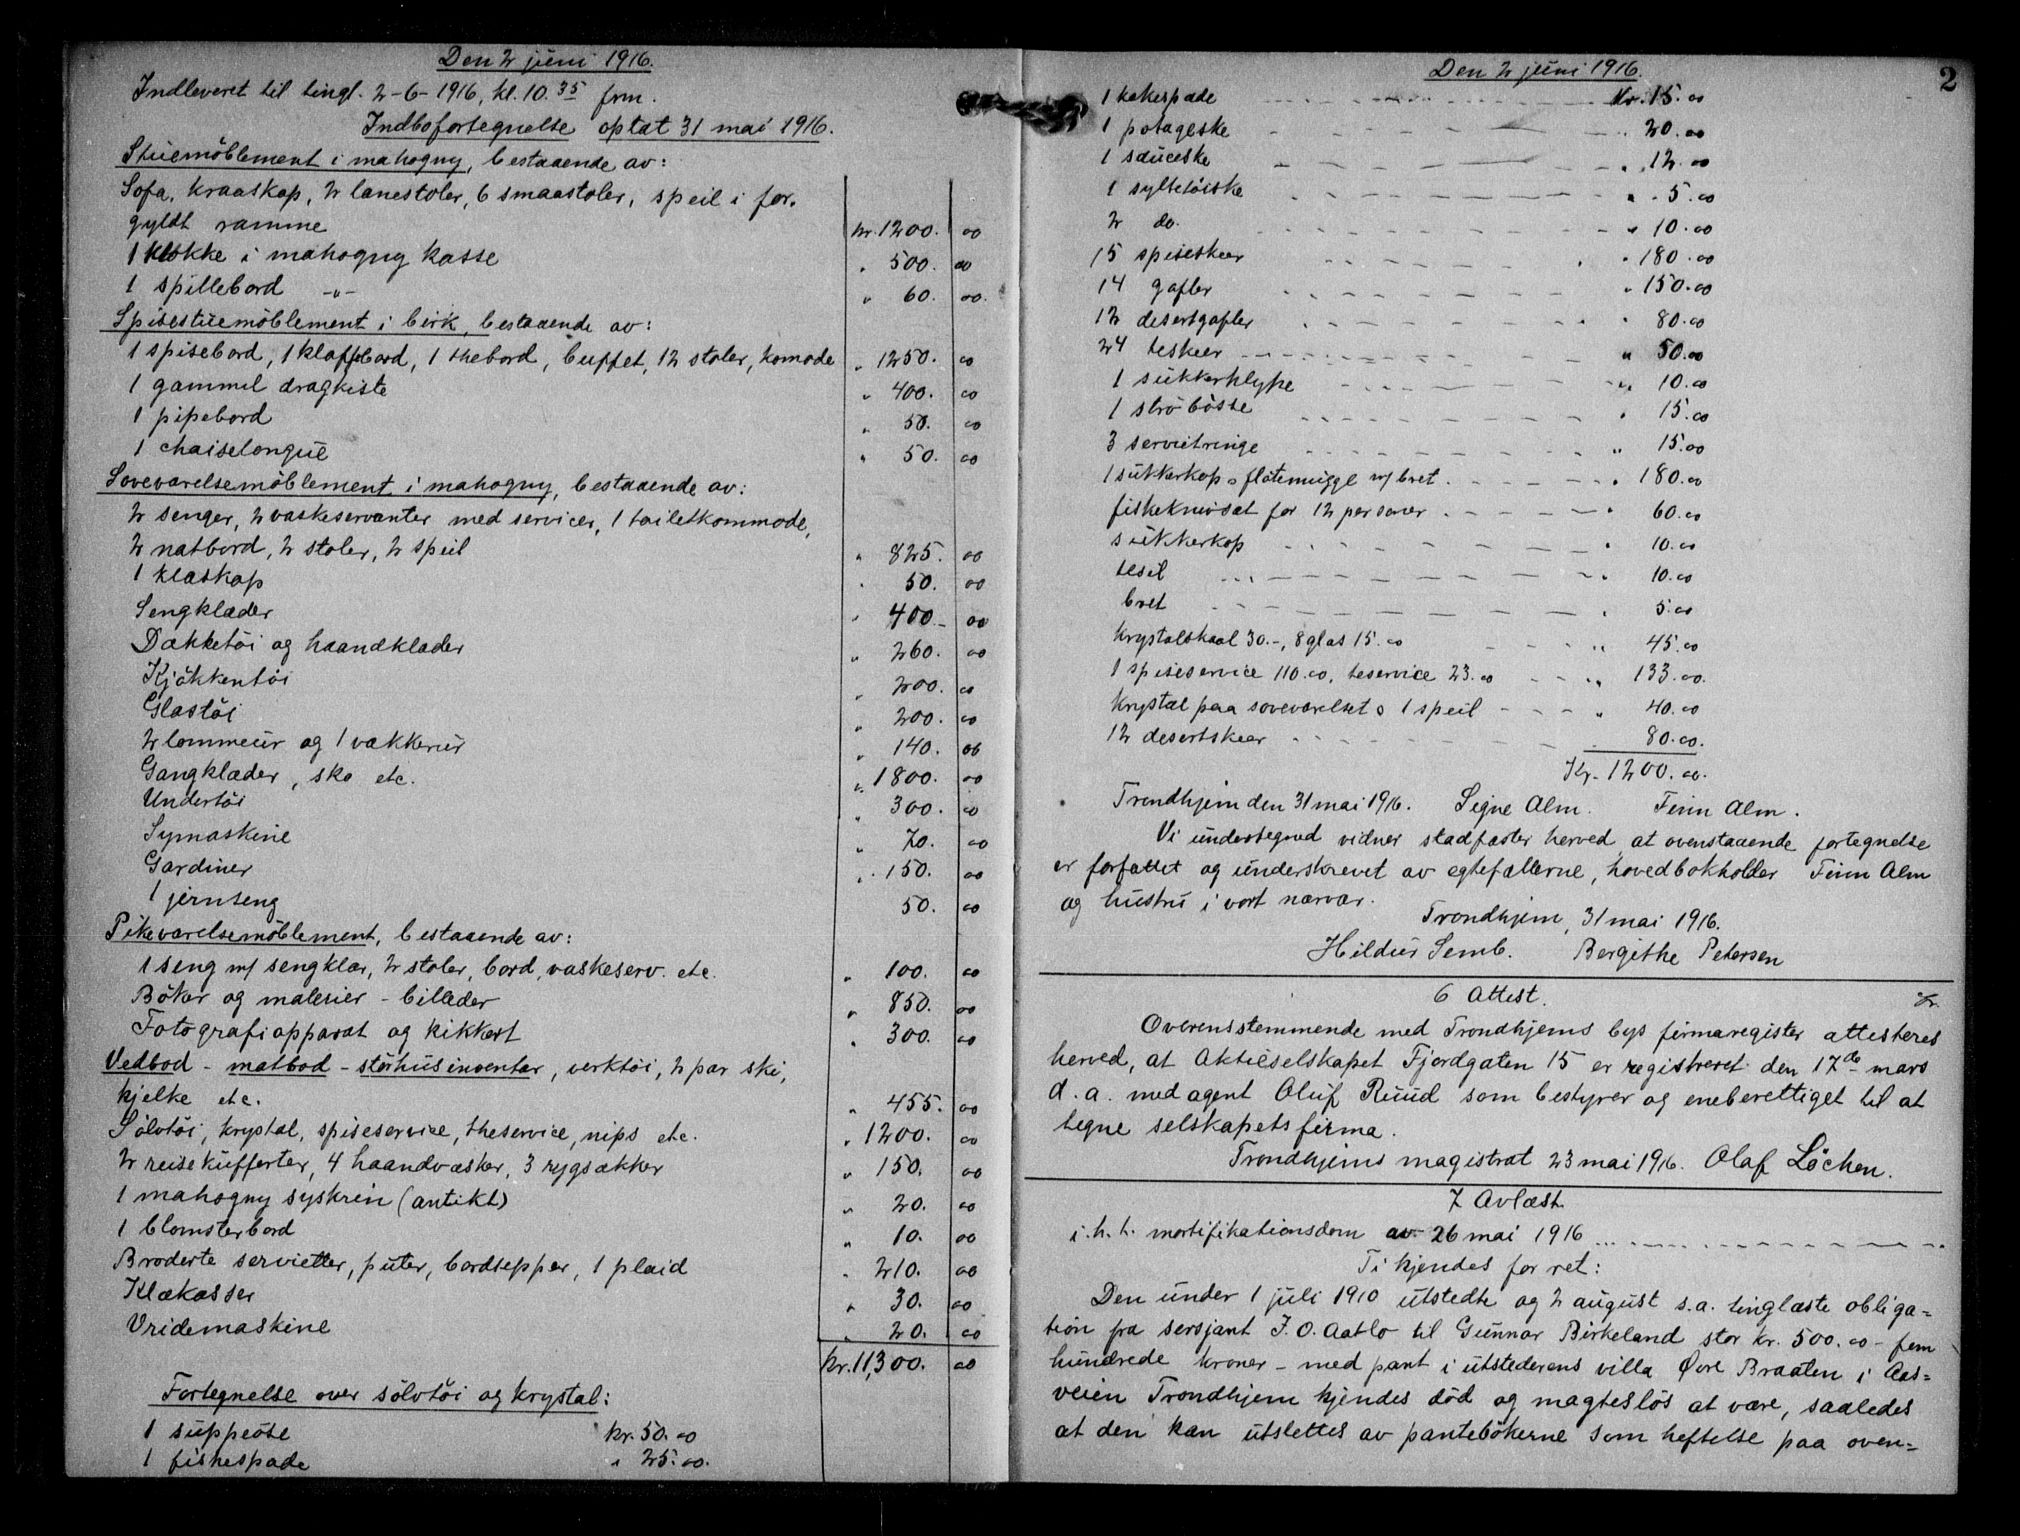 Den 2 juni 1916.
Indleveret til tingl. 2-6-1916, kl. 10.35 fm.
Indbofortegnelse optat 31 mai 1916.
Stuemöblement i mahogny, bestaaende av:
Sofa, kraaskap, 2 lænestoler, 6 smaastoler, speil i for-
gyldt ramme kr. 1200. 00
1 klokke i mahogny kasse " 500. 00
1 spillebord -"- " 60. 00.
Spisestuemöblement i birk, bestaaende av:
1 spisebord, 1 klaffebord, 1 thebord, buffet, 12 stoler, komode " 1250. 00
1 gammel dragkiste " 400. 00
1 pipebord " 50. 00
1 chaiselongue " 50. 00
Soveværelsemöblement i mahogny, bestaaende av:
2 senger, 2 vaskeservanter med servicer, 1 toiletkommode,
2 natbord, 2 stoler, 2 speil " 825. 00
1 klæskap " 50. 00
Sengklæder " 400- 00
Dækketöi og haandklæder " 260. 00
Kjökkentöi " 200. 00
Glastöi " 200. 00
2 lommeur og 1 vækkerur " 140. 00
Gangklæder, sko etc. " 1800. 00
Undertöi " 300. 00
Symaskine " 70. 00
Gardiner " 150. 00
1 jernseng 50. 00
Pikeværelsemöblement, bestaaende av:
1 seng m/ sengklær, 2 stoler, bord, vaskeserv. etc. " 100. 00
Böker og malerier - billeder " 850. 00
Fotografiapparat og kikkert " 300. 00
Vedbod - matbod - störhusinventar, verktöi, 2 par ski,
kjelke etc. " 455. 00
Sölvtöi, krystal, spiseservice, theservice, nips etc. " 1200. 00
2 reisekufferter, 4 haandvæsker, 3 rygsækker " 150. 00
1 mahogny syskrin (antikt) " 20. 00
1 blomsterbord " 10. 00
Broderte servietter, puter, bordtepper, 1 plaid " 210. 00
Klækasser " 30. 00
Vridemaskine " 20. 00
kr. 11,300. 00
Fortegnelse over sölvtöi og krystal:
1 suppeöse kr. 50.00
1 fiskespade " 25.00.
Den 2 juni 1916. 2
1 kakespade Kr. 15.00
1 potageske " 20.00
1 sauceske " 12.00
1 syltetöiske " 5.00
2 do. " 10.00
15 spiseskeer " 180.00
14 gafler " 150.00
12 desertgafler " 80.00
24 teskeer " 50.00
1 sukkerklype " 10.00
1 ströbösse " 15.00
3 servietringe " 15.00
1 sukkerkop o flötemugge m/ bret " 180.00
fiskeknivsæt for 12 personer " 60.00
sukkerkop " 10.00
tesil " 10.00
bret " 5.00
Krystalskaal 30.-, 8 glas 15.00 " 45.00
1 spiseservice 110.00, teservice 23.00 " 133.00.
Krystal paa soveværelset o 1 speil " 40.00
12 desertskeer 80.00.
Kr. 1200.00.
Trondhjem den 31 mai 1916. Signe Alm. Finn Alm.
Vi undertegned vidner stadfæster herved at ovenstaaende fortegnelse
er forfattet og underskrevet av egtefællerne, hovedbokholder Finn Alm
og hustru i vort nærvær.
Trondhjem, 31 mai 1916.
Hildur Semb. Bergithe Petersen
6 Attest.
Overensstemmende med Trondhjems bys firmaregister attesteres
herved, at Aktieselskapet Fjordgaten 15 er registreret den 17de mars
d. a. med agent Oluf Ruud som bestyrer og eneberettiget til at
tegne selskapets firma.
Trondhjems magistrat 23 mai 1916. Olaf Löchen.
7 Avlæst
i.h.t. mortifikationsdom av 26 mai 1916
Ti kjendes for ret:
Den under 1 juli 1910 utstedte og 2 august s.a. tinglæste obliga=
tion fra sersjant J. O. Aatlo til Gunnar Birkeland stor kr. 500.00 - fem
hundrede kroner - med pant i utstederens villa Øvre Braaten i Aas=
veien Trondhjem kjendes död og magteslös at være, saaledes
at den kan utslettes av pantebökerne som heftelse paa oven=